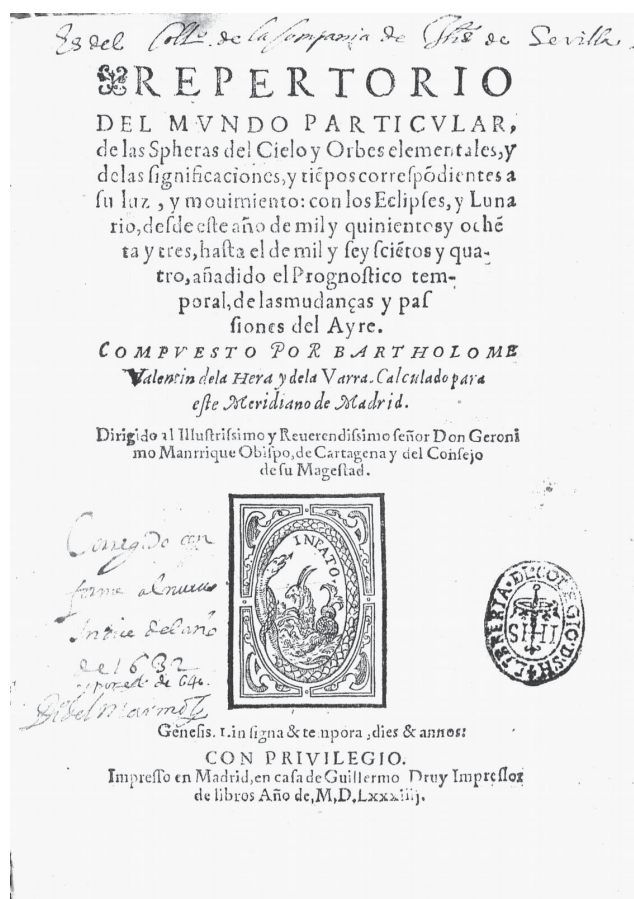 Es del Coll.º de la Compania de Jhs de Sevilla.
REPERTORIO
DEL MVNDO PARTICVLAR,
de las Spheras del Cielo y Orbes elementales, y
de las ſignificaciones, y tiẽpos correſpõdientes a
ſu luz, y mouimiento: con los Eclipſes, y Luna
rio, deſde eſte año de mil y quinientos y ochẽ
ta y tres, haſta el de mil y ſeyſciẽtos y qua-
tro, añadido el Prognoſtico tem-
poral, de las mudanças y paſ
ſiones del Ayre.
COMPVESTO POR BARTHOLOME
Valentin dela Hera y dela Varra. Calculado para
eſte Meridiano de Madrid.
Dirigido al Illuſtriſsimo y Reuerendiſsimo ſeñor Don Geroni
mo Manrrique Obiſpo, de Cartagena y del Conſejo
de ſu Mageſtad.
INFATO.
Corregido con
forme al nuevo
Indice del año
de 1632
y por el de 640.
LIBRERIA·DE COLEGIO D S H
SHI
Geneſis. 1. in ſigna & tempora, dies & annos:
CON PRIVILEGIO.
Impreſſo en Madrid, en caſa de Guillermo Druy Impreſſor
de libros Año de, M,D,Lxxxiiij.